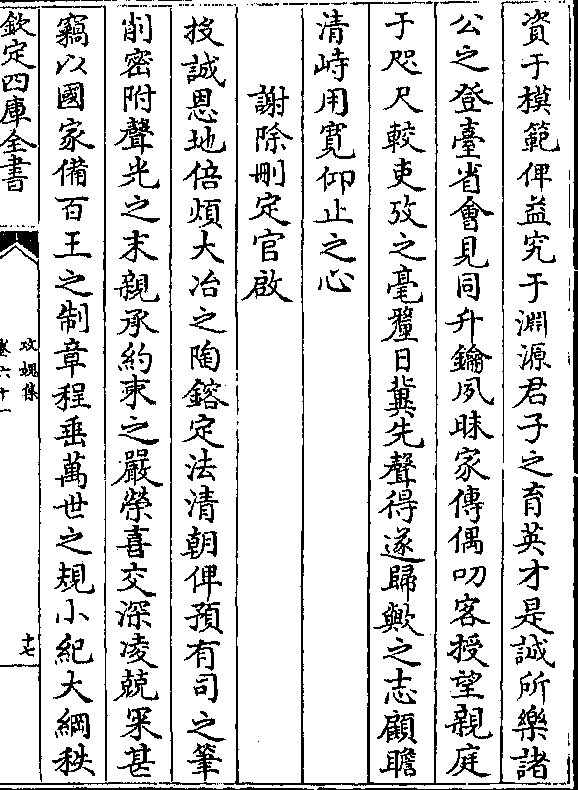 資于模範俾益究于淵源君子之育英才是誠所樂諸
公之登臺省會見同升鑰夙昧家傳偶叨客授望親庭
于咫尺較吏攷之毫釐日冀先聲得遂歸歟之志顧瞻
清峙用寛仰止之心
謝除刪定官啟
投誠恩地倍煩大冶之陶鎔定法清朝俾預有司之筆
削密附聲光之末親承約束之嚴榮喜交深凌兢罙甚
竊以國家備百王之制章程垂萬世之規小紀大綱秩
欽定四庫全書
攻媿集
卷六十一
十七